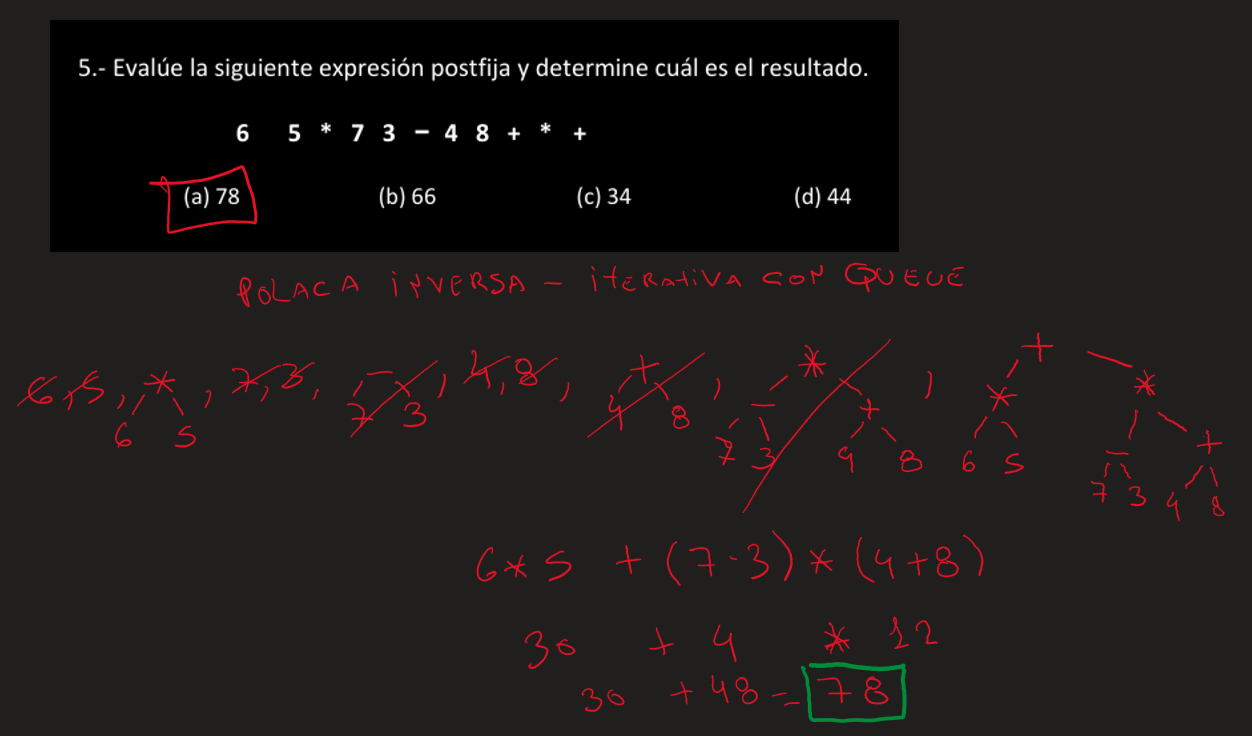 5.- Evalúe la siguiente expresión postfija y determine cuál es el resultado.
6 5 * 7 3 − 4 8 + * +
(a) 78 (b) 66 (c) 34 (d) 44
POLACA INVERSA - ITERATIVA CON QUEUE
6, 5, *, 7, 3, −, 4, 8, +, *, +
* *
7 3 4 8 − + − +
6 5 7 3 4 8 6 5 7 3 4 8
6 * 5 + (7-3) * (4+8)
30 + 4 * 12
30 + 48 = 78